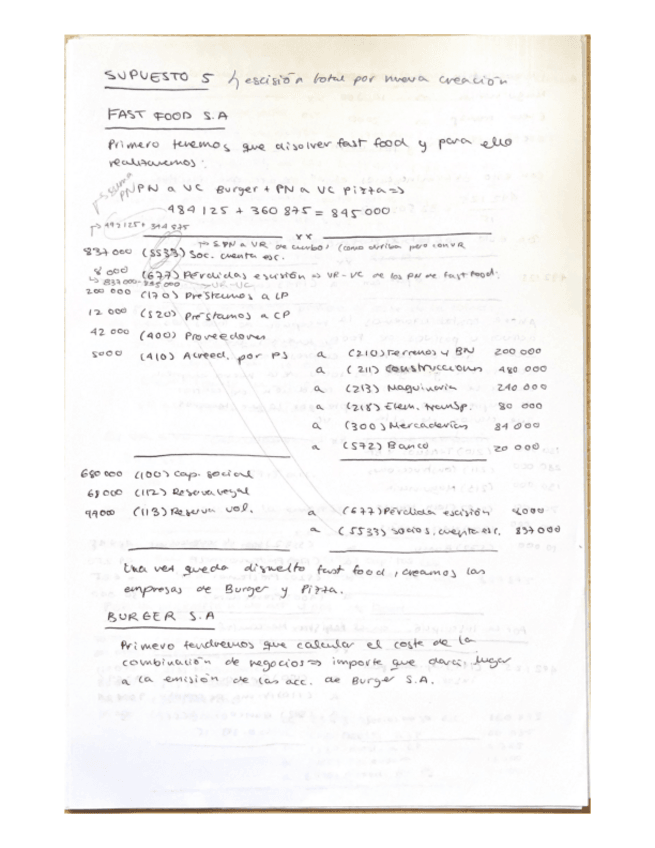 SUPUESTO 5 ↳ escisión total por nueva creación
FAST FOOD S.A
Primero tenemos que disolver fast food y para ello
realizaremos:
PN a VC Burger + PN a VC Pizza =>
484 125 + 360 875 = 845 000
→ 492 125 + 344 875
x x
837 000 (5533) Soc. cuenta esc.
8 000 (677) Pérdidas escisión => VR - VC de los PN de Fast Food.
200 000 (170) Préstamos a LP
12 000 (520) Préstamos a CP
42 000 (400) Proveedores
5000 (410) Acreed. por PS a (210) Terrenos y BN 200 000
a (211) Construcciones 480 000
a (213) Maquinaria 240 000
a (218) Elem. transp. 80 000
a (300) Mercaderías 84 000
a (572) Banco 20 000
680 000 (100) Cap. social
(112) Reserva legal
(113) Reserva vol. a (677) Pérdida escisión 8000
a (5533) Socios, cuenta esc. 837 000
Una vez queda disuelto fast food, creamos las
empresas de Burger y Pizza.
BURGER S.A
Primero tendremos que calcular el coste de la
combinación de negocios => importe que dará lugar
a la emisión de las acc. de Burger S.A.